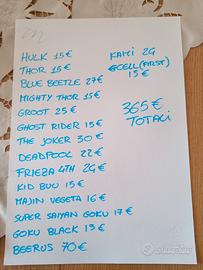 HULK 15€
THOR 15€
BLUE BEETLE 27€
MIGHTY THOR 15€
GROOT 25€
GHOST RIDER 15€
THE JOKER 30€
DEADPOOL 22€
FRIEZA 4TH 2G€
KID BUU 15€
MAJIN VEGETA 16€
SUPER SAIYAN GOKU 17€
GOKU BLACK 13€
BEERUS 70€
KAMI 2G
GCELL (FIRST)
15€
365€
TOTALI
subito.it